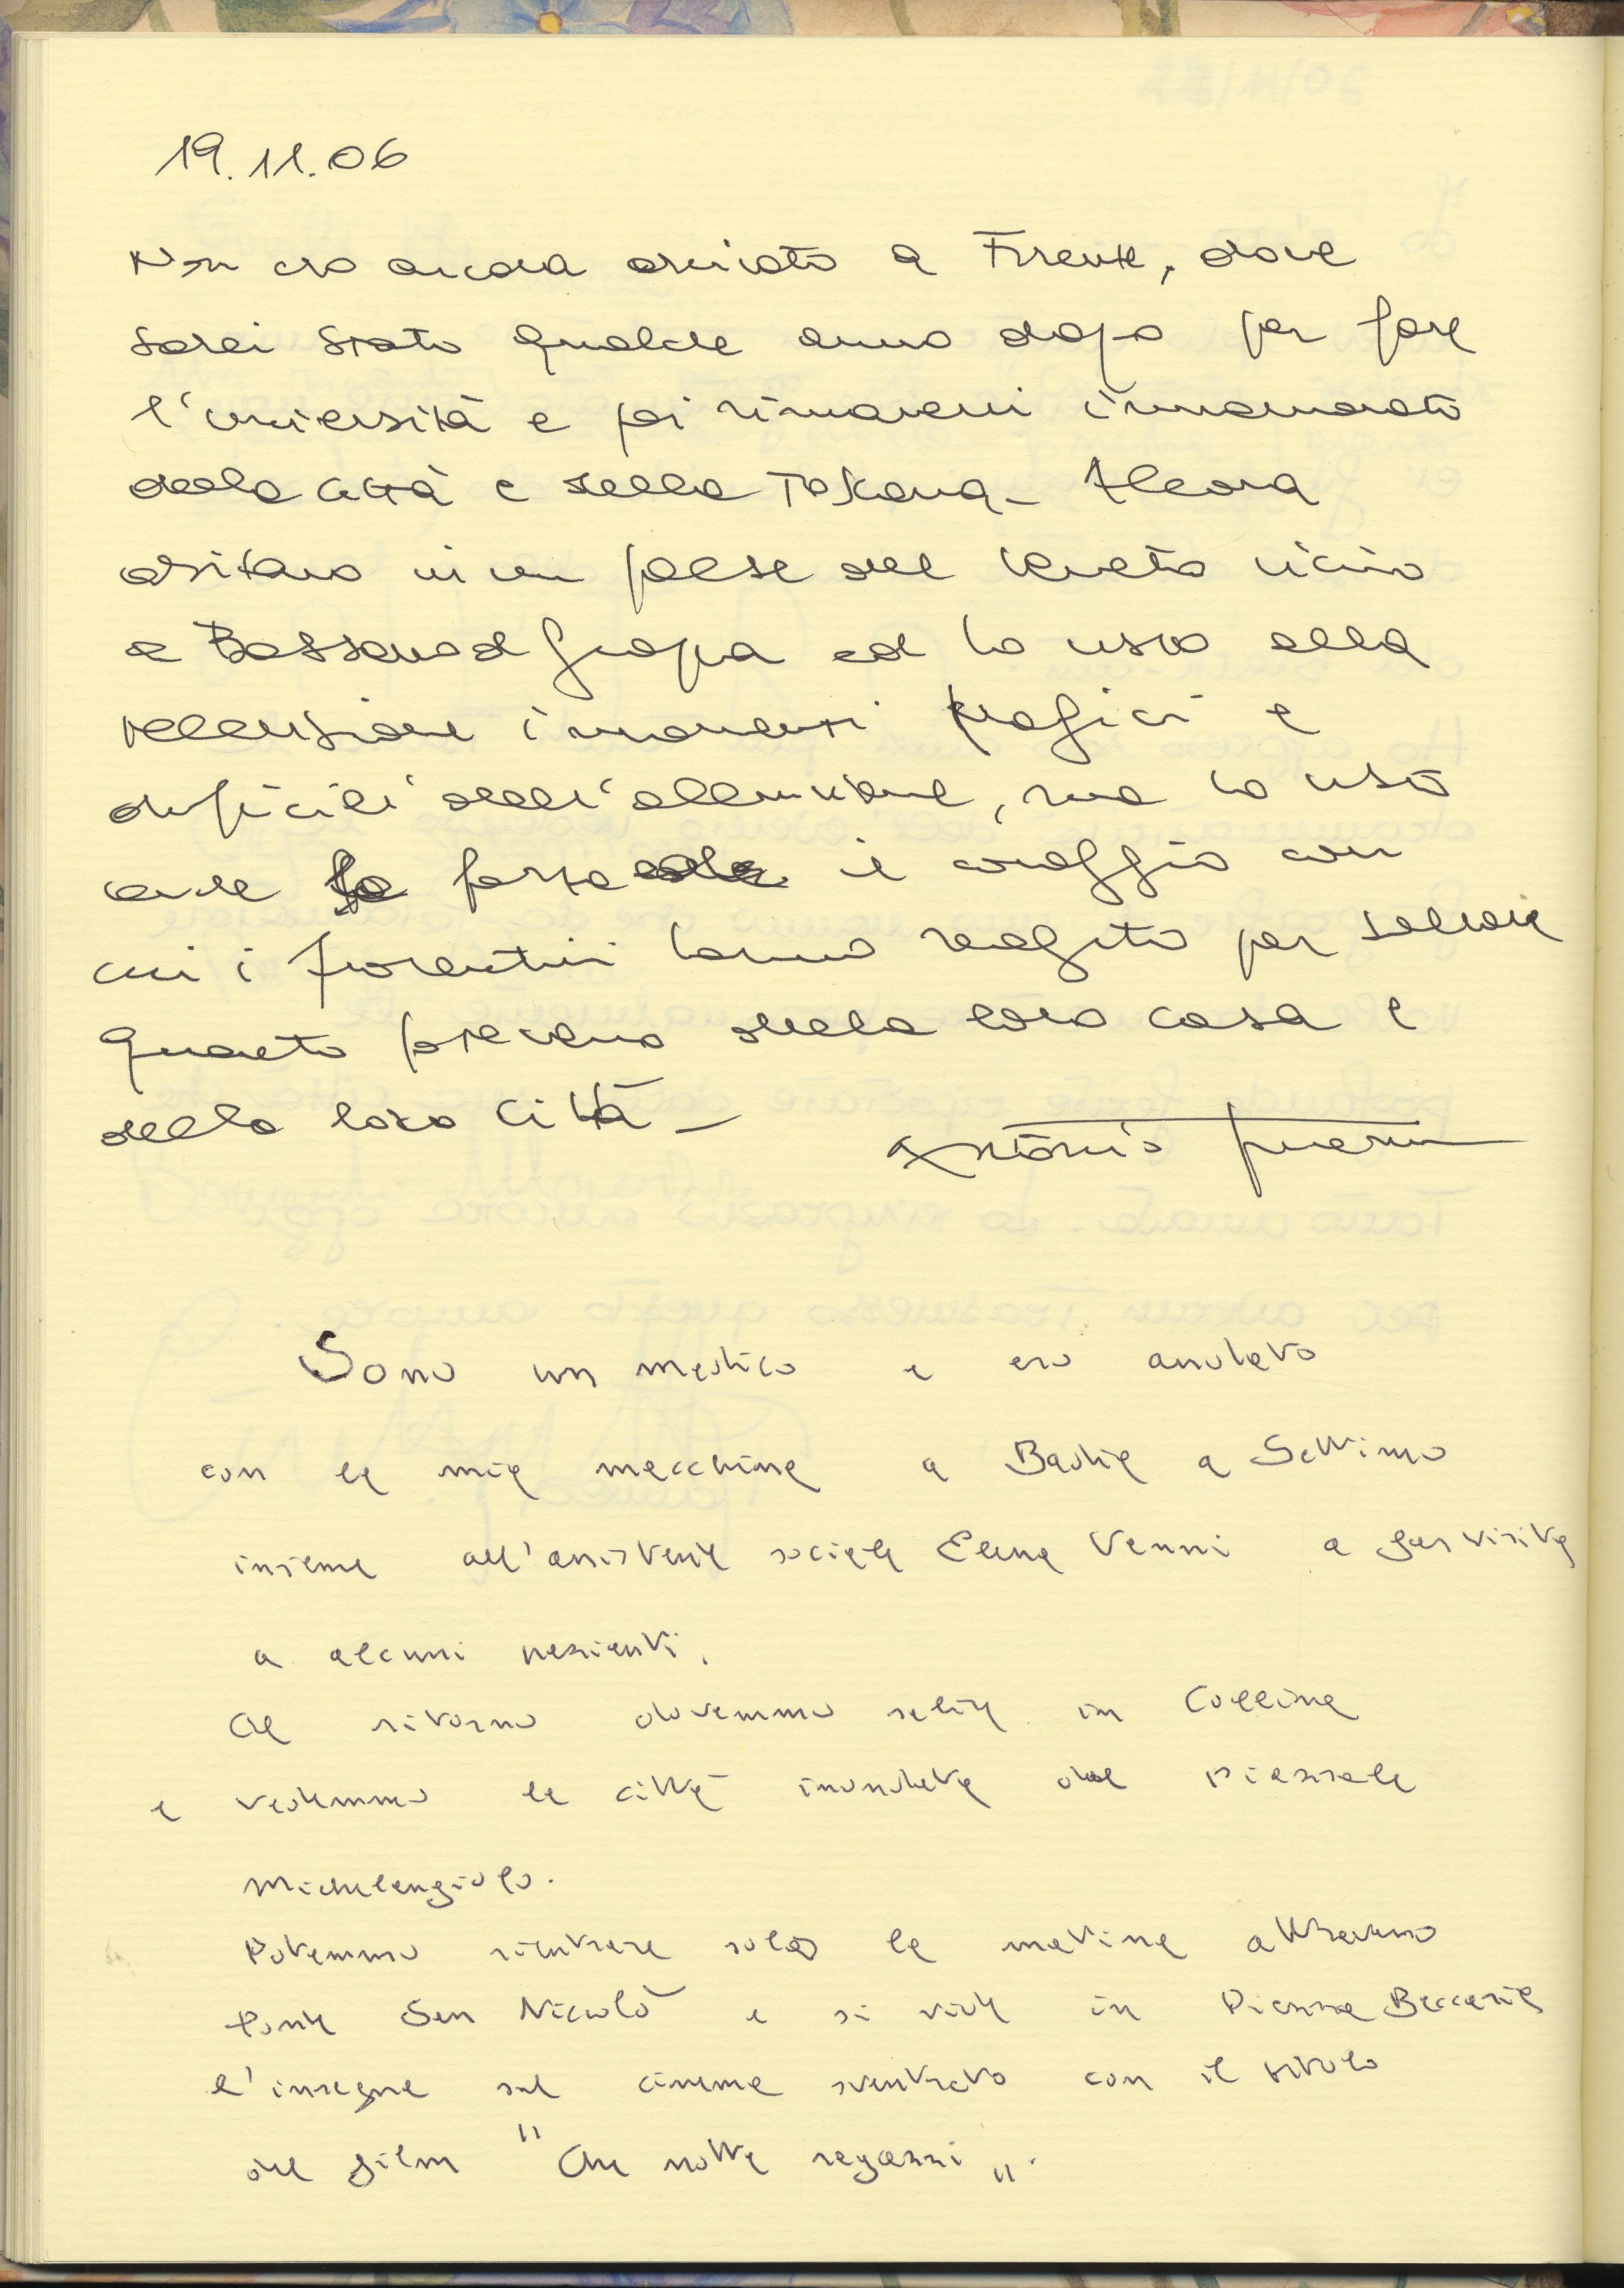 19.11.06
Non ero ancora arrivato a Firenze, dove
sarei stato qualche anno dopo per fare
l'università e poi rimanervi innamorato
della città e della Toscana_ Allora
abitavo in un paese del Veneto vicino
a Bassano del Grappa ed ho visto alla
televisione i momenti tragici e
difficili dell'alluvione, ma ho visto
anche la forza il coraggio con
cui i fiorentini hanno reagito per salvare
quanto potevano della loro casa e
della loro città_
Antonio
Sono un medico e ero andato
con la mia macchina a Badia a Settimo
insieme all'assistente sociale Elena Vanni a far visita
a alcuni pazienti.
Al ritorno dovemmo salire in Collina
e vedemmo la città inondata dal Piazzale
Michelangiolo.
Potemmo rientrare solo la mattina attraverso
Ponte San Niccolò e si vide in Piazza Beccaria
l'insegna sul cinema sventrato con il titolo
del film "Che notte ragazzi".